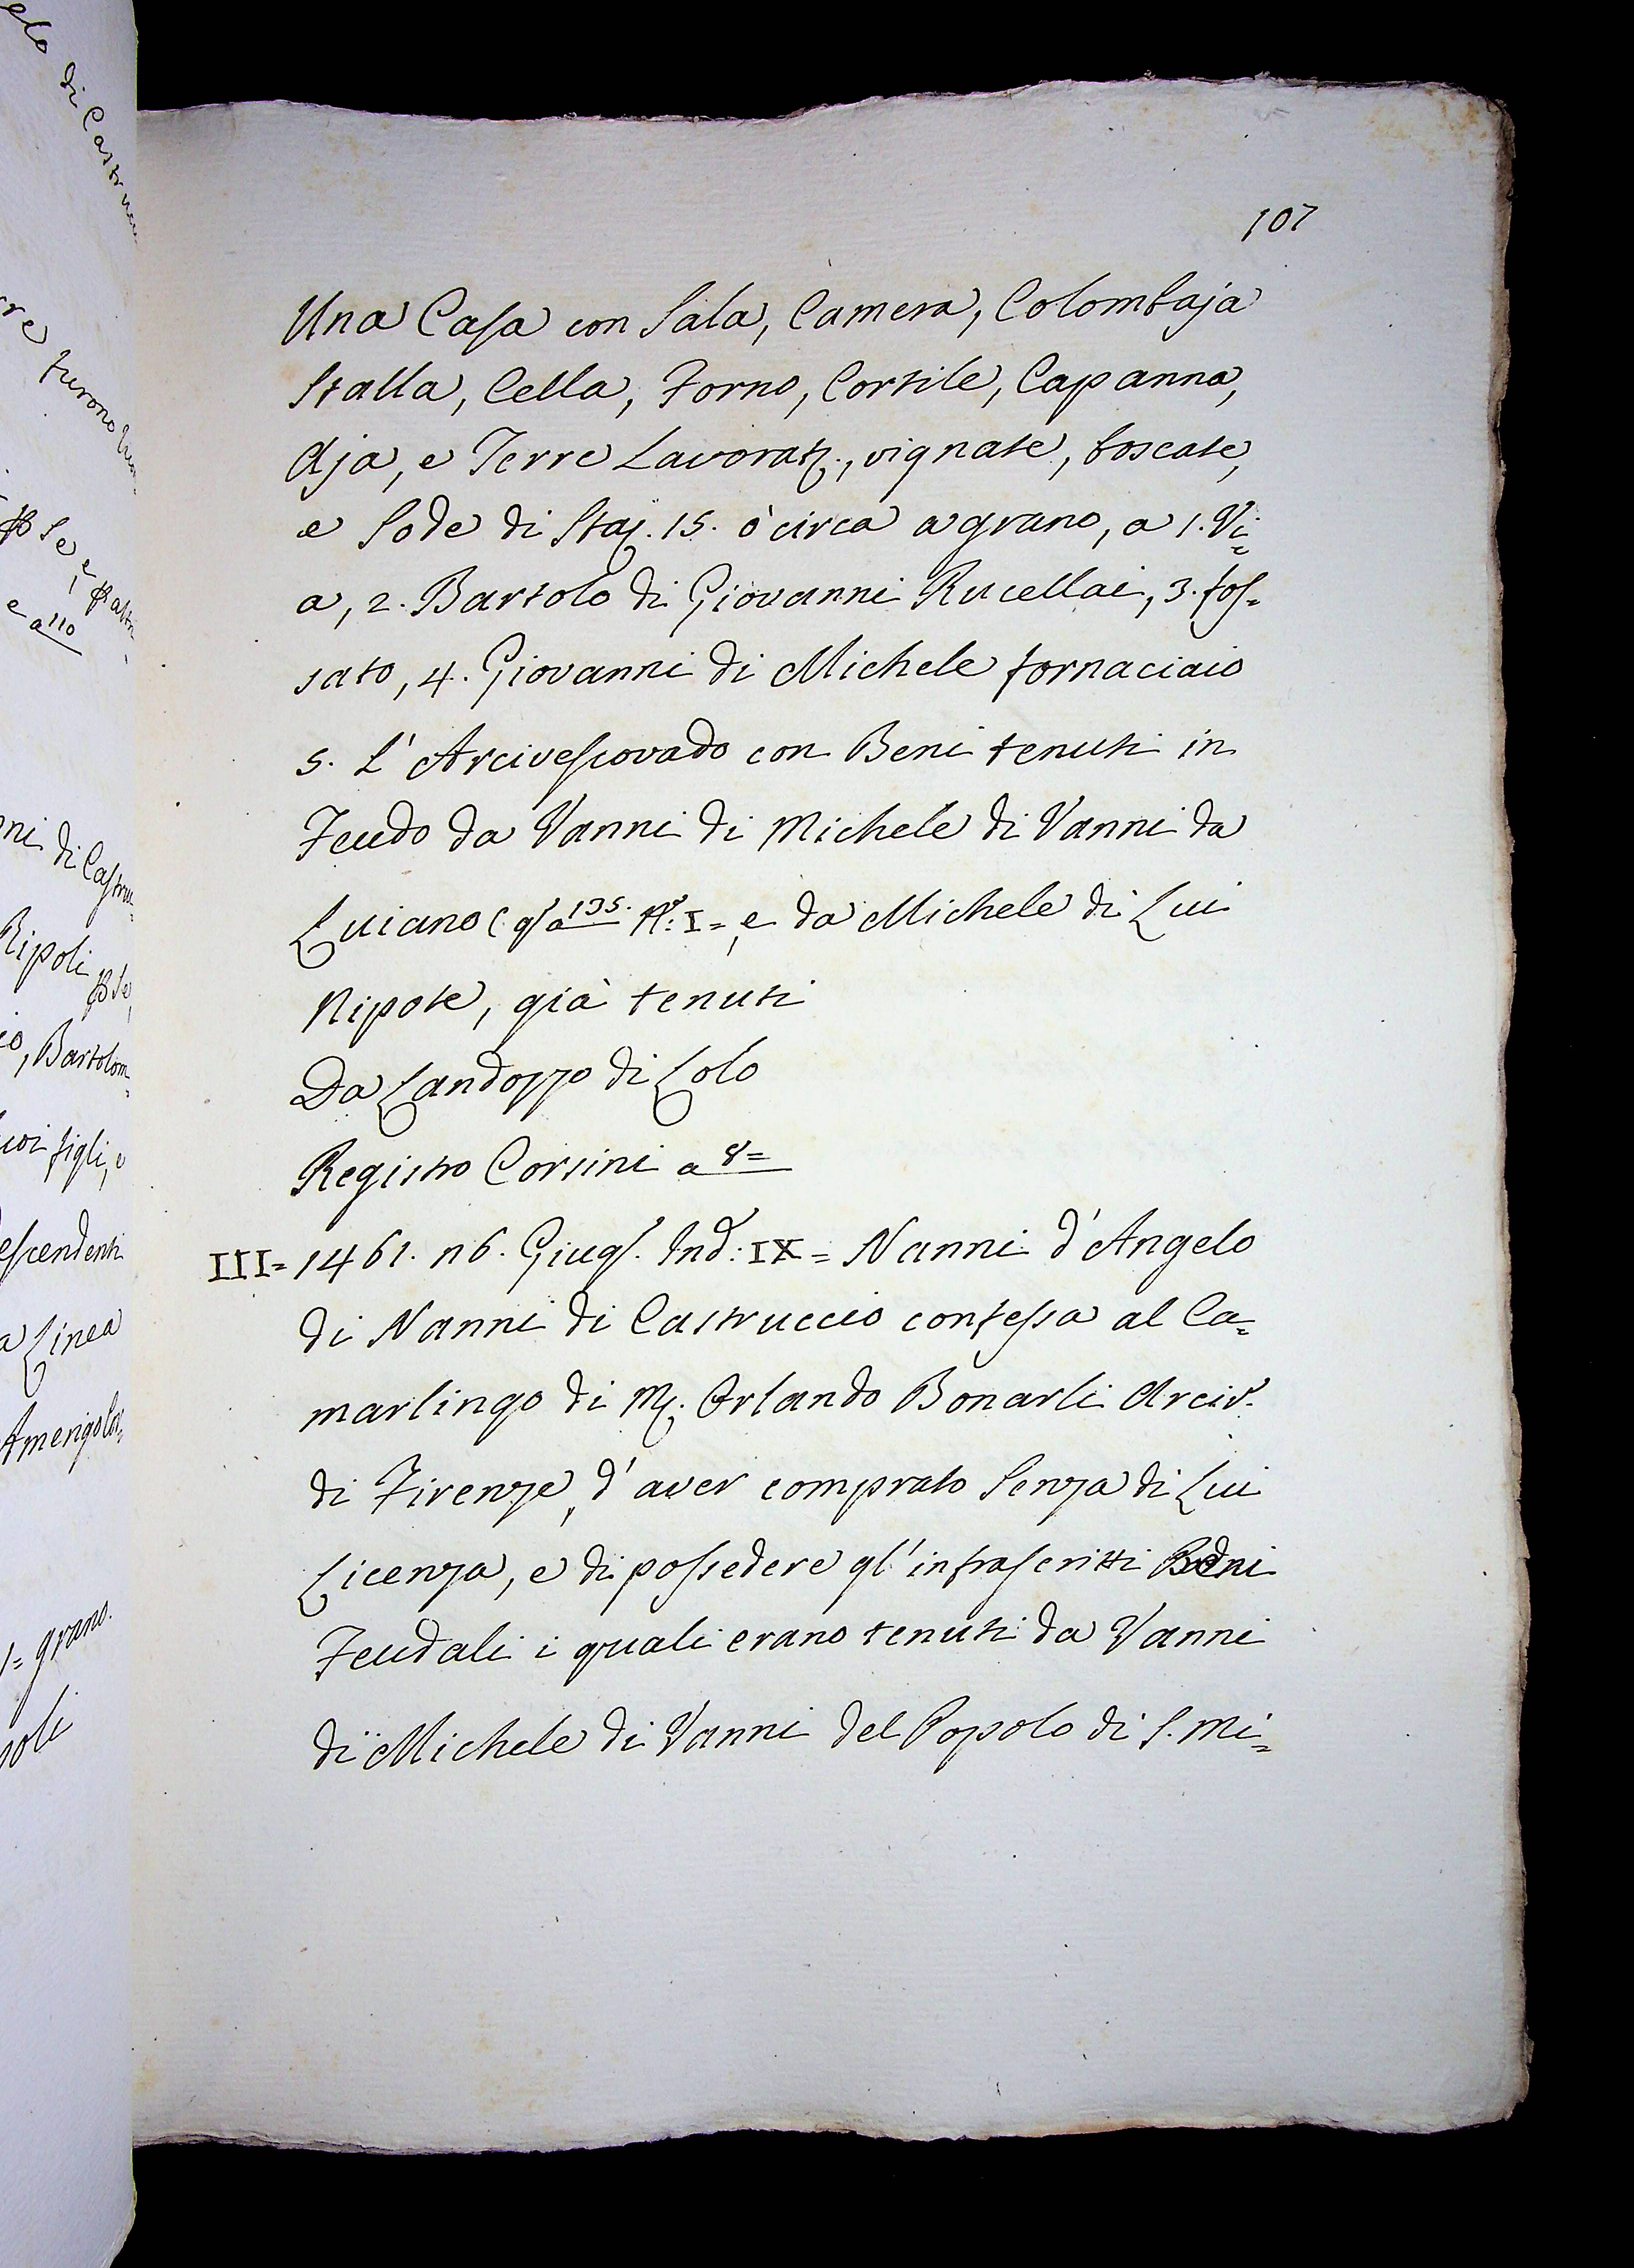 107
Una Casa con Sala, Camera, Colombaja
Stalla, Cella, Forno, Cortile, Capanna,
Aja, e Terre Lavorat., vignate, boscate,
e Sode di Staj. 15. ò circa a grano, a 1. Vi=
a, 2. Bartolo di Giovanni Rucellai, 3. fos=
sato, 4. Giovanni di Michele fornaciaio
5. L' Arcivescovado con Beni tenuti in
Feudo da Vanni di Michele di Vanni da
Luiano (qs a 135. N.º I=, e da Michele di Lui
Nipote, già tenuti
Da Landozzo di Lolo
Registro Corsini a 8=
III= 1461. 16. Giug. Ind: IX= Nanni d'Angelo
di Nanni di Castruccio confessa al Ca=
marlingo di M. Orlando Bonarli Arciv.
di Firenze, d'aver comprato Senza di Lui
Licenza, e di possedere gl'infrascritti Beni
Feudali i quali erano tenuti da Vanni
di Michele di Vanni del Popolo di S. Mi=